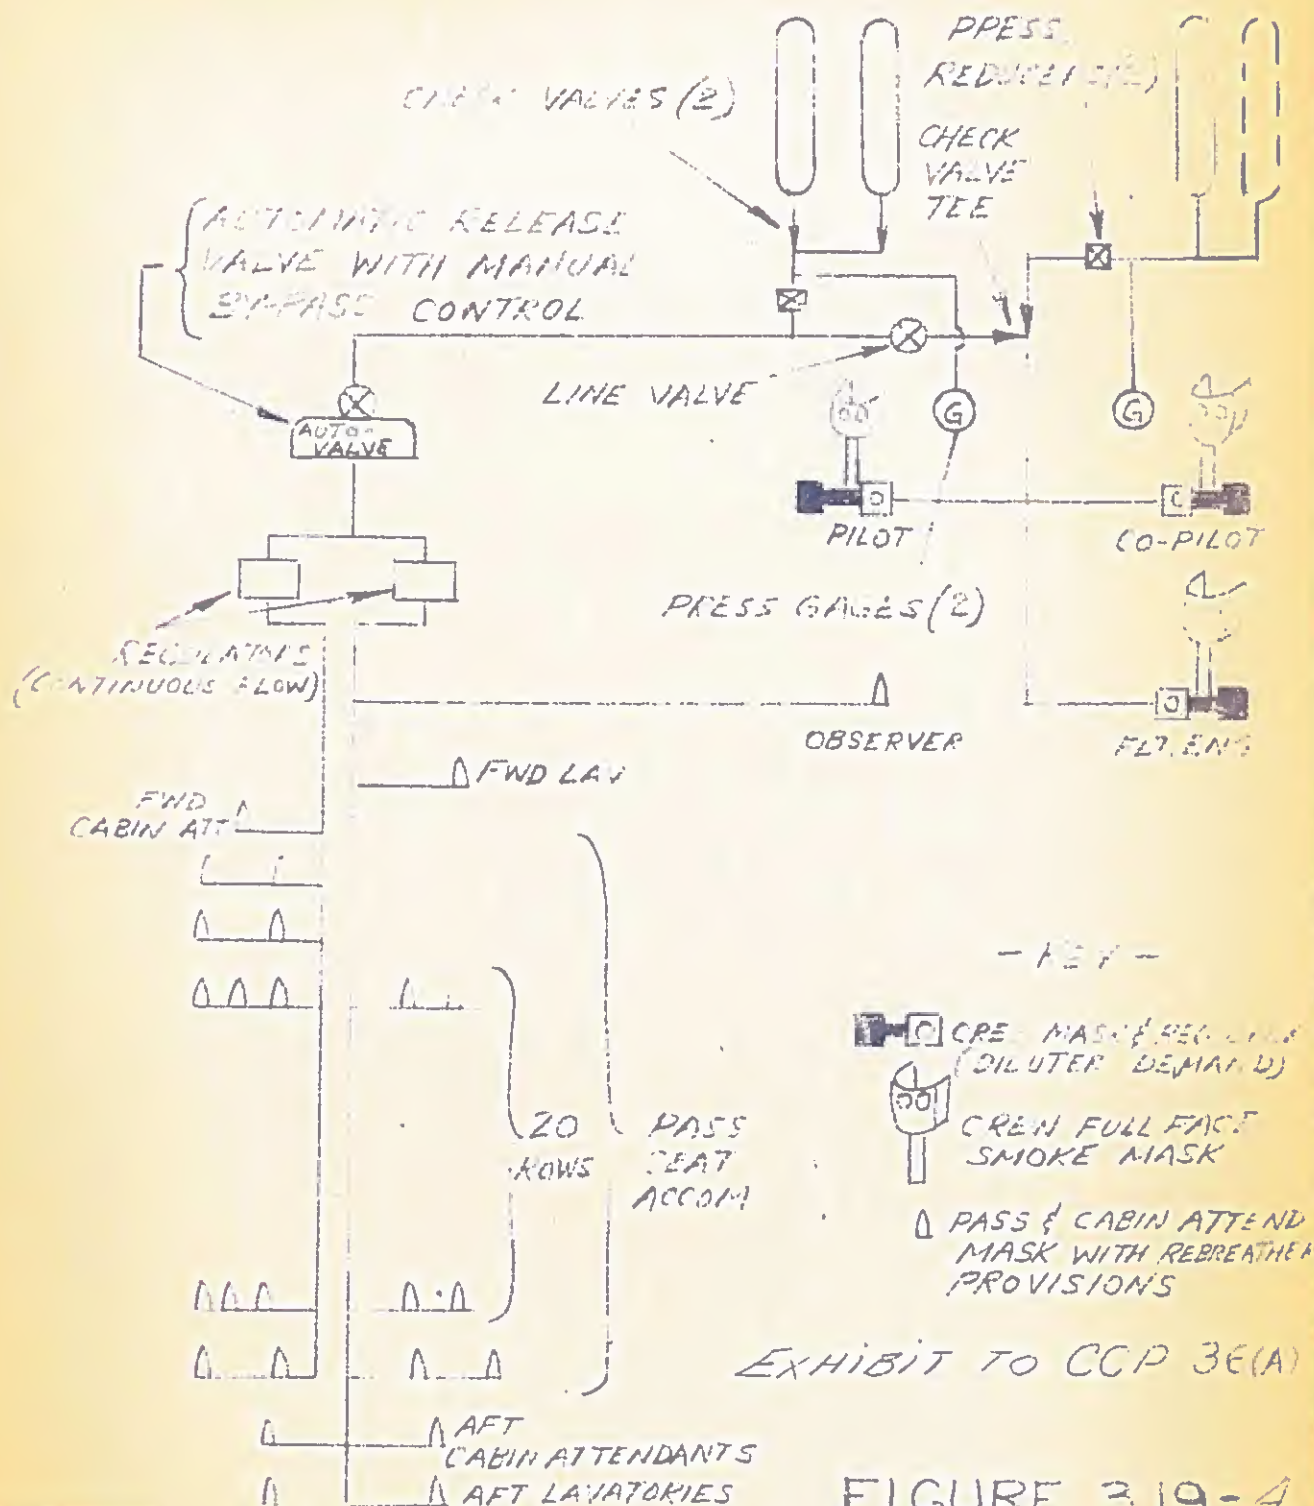 CHECK VALVES (2)
PRESS.
REDUCERS (2)
CHECK
VALVE
TEE
AUTOMATIC RELEASE
VALVE WITH MANUAL
BY-PASS CONTROL
LINE VALVE
AUTO-
VALVE
G
G
PILOT
CO-PILOT
PRESS GAGES (2)
REGULATORS
(CONTINUOUS FLOW)
OBSERVER
FLT. ENG
FWD LAV
FWD
CABIN ATT
20
ROWS
PASS
SEAT
ACCOM
- KEY -
CREW MASK &
(DILUTER DEMAND)
CREW FULL FACE
SMOKE MASK
PASS & CABIN ATTEND
MASK WITH REBREATHER
PROVISIONS
EXHIBIT TO CCP 36(A)
AFT
CABIN ATTENDANTS
AFT LAVATORIES
FIGURE 3.19-4